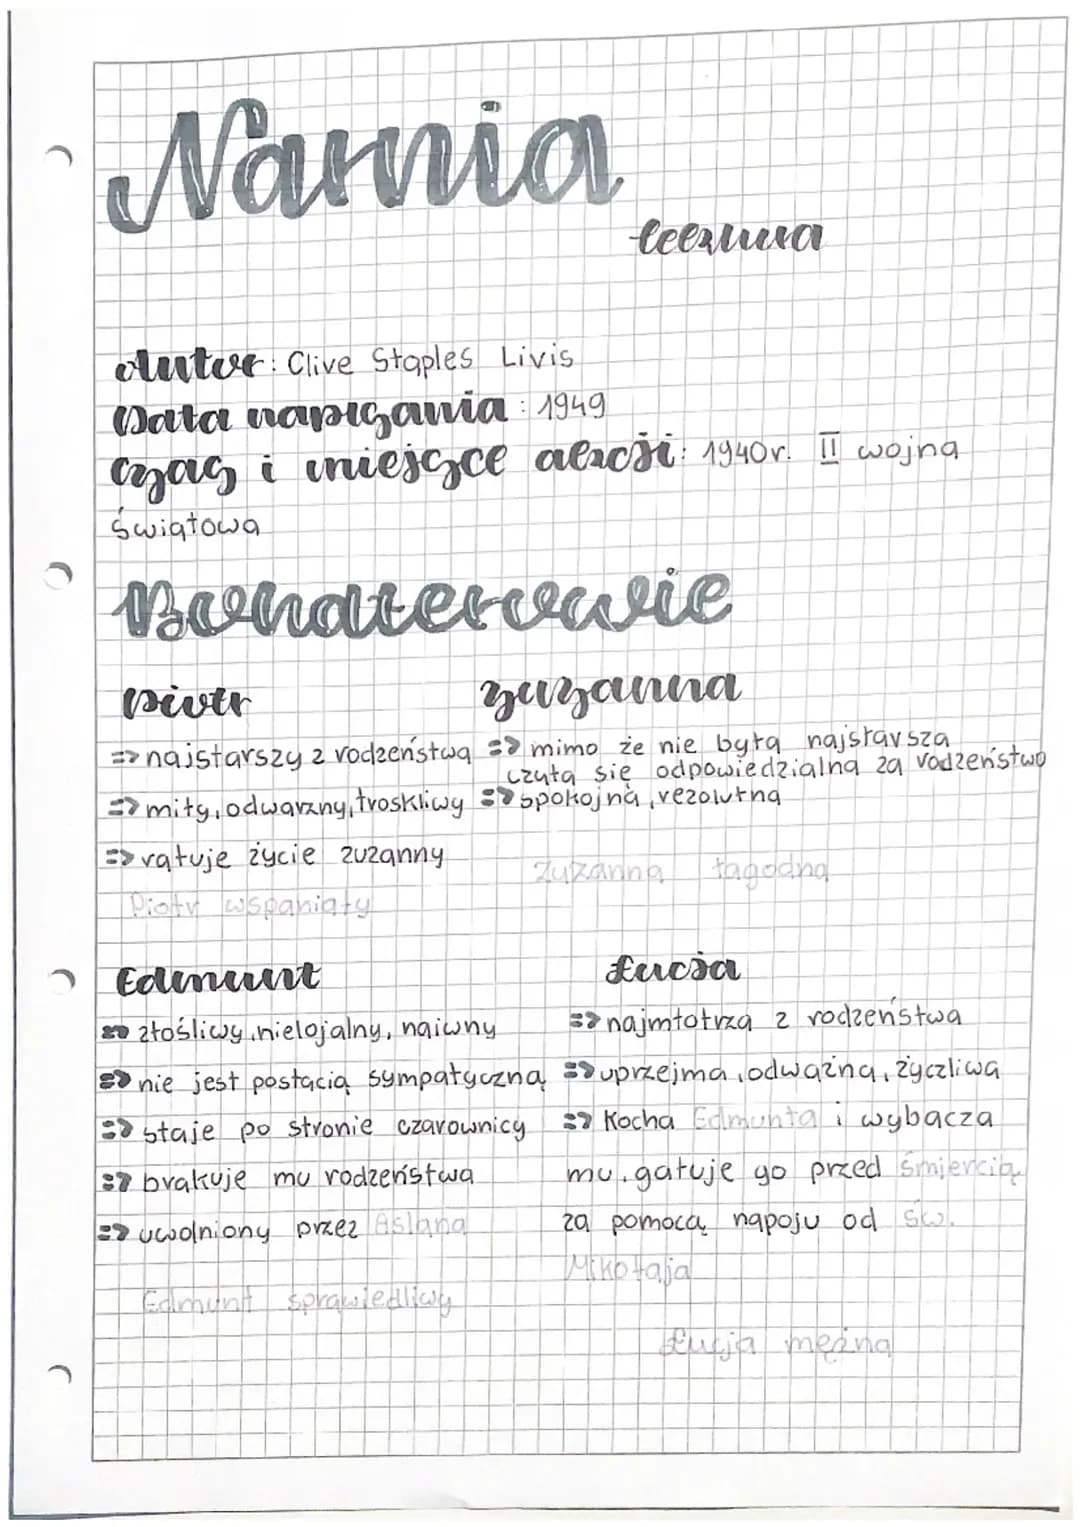 Narnia
lektura
Autor: Clive Staples Livis
Data napisania: 1949
Czas i miejsce akcji: 1940r. II wojna
światowa
Bohaterowie
Piotr
Zuzanna
=> najstarszy z rodzeństwa
=> miły, odwarzny, troskliwy
=> ratuje życie zuzanny
Piotr wspaniały
=> mimo że nie była najstarsza
czuła się odpowiedzialna za rodzeństwo
=> spokojna, rezolutna
Zuzanna łagodna
Edmunt
=> złośliwy, nielojalny, naiwny
=> nie jest postacią sympatyczną
=> staje po stronie czarownicy
=> brakuje mu rodzeństwa
=> uwolniony przez Aslana
Edmunt sprawiedliwy
Łucja
=> najmłotrza z rodzeństwa
=> uprzejma, odważna, życzliwa
=> Kocha Edmunta i wybacza
mu. gatuje go przed śmiercią
za pomocą napoju od św.
Mikołaja
Łucja mężna